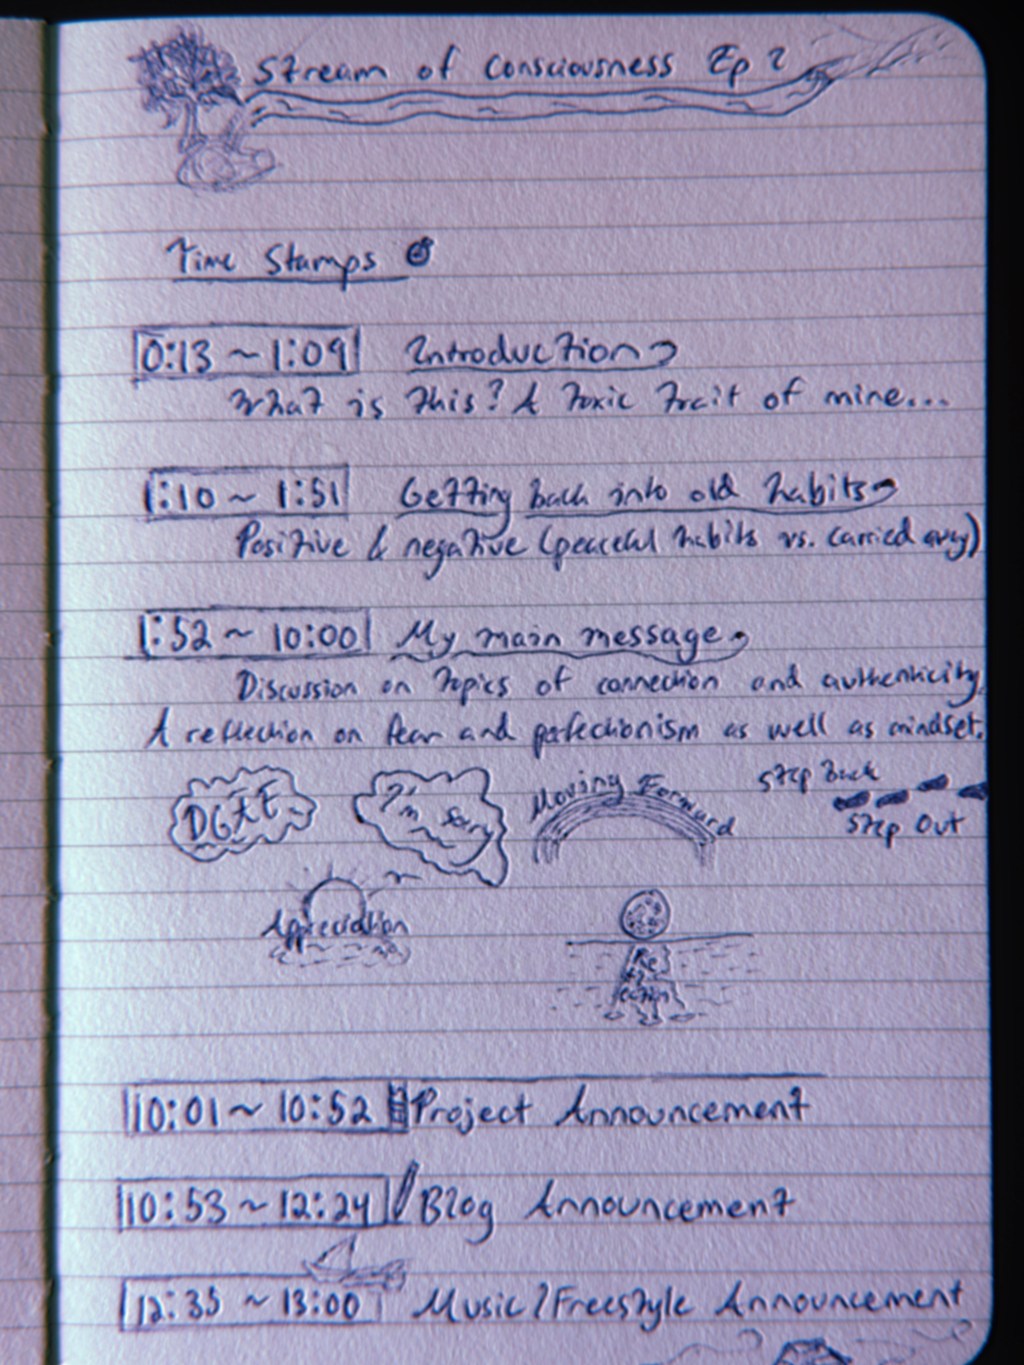 Stream of Consciousness Ep 2
Time Stamps
0:13 ~ 1:09 Introduction
What is this? A toxic trait of mine...
1:10 ~ 1:51 Getting back into old habits
Positive & negative (peaceful habits vs. carried away)
1:52 ~ 10:00 My main message
Discussion on topics of connection and authenticity.
A reflection on fear and perfectionism as well as mindset.
I'm Sorry
Moving Forward
Step Back
Step Out
Appreciation
Re
fl
ection
10:01 ~ 10:52 Project Announcement
10:53 ~ 12:24 Blog Announcement
12:35 ~ 13:00 Music/Freestyle Announcement